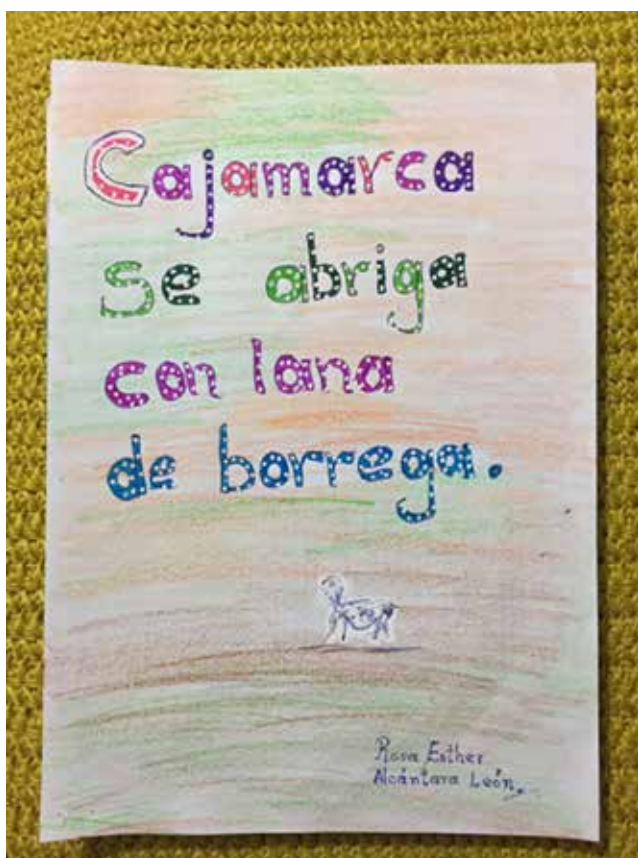 Cajamarca
se abriga
con lana
de borrega.
Rosa Esther
Alcántara León.